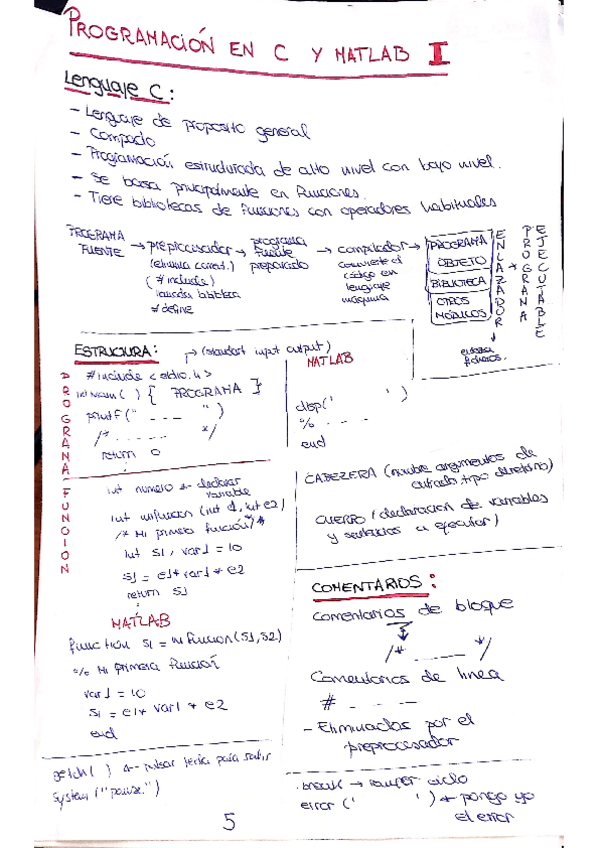 PROGRAMACIÓN EN C Y MATLAB I
Lenguaje C:
- Lenguaje de proposito general
- Compacto
- Programación estructurada de alto nivel con bajo nivel.
- Se basa principalmente en funciones.
- Tiene bibliotecas de funciones con operadores habituales
PROGRAMA FUENTE → preprocesador → programa fuente preparado → compilador → PROGRAMA OBJETO
(elimina coment.)
(# include)
# define
convierte el
código en
lenguaje
máquina
BIBLIOTECA
OTROS
MÓDULOS
ENLAZADOR
PROGRAMA
EJECUTABLE
enlaza
ficheros.
ESTRUCTURA:
→ (standart input output)
PROGRAMA-FUNCION
#include <stdio.h>
int main ( ) { PROGRAMA }
printf (" - - - ")
/* - - - - - */
return 0
MATLAB
disp(' ')
% - - - -
end
int numero ← declarar
variable
int mifuncion (int e1, int e2)
/* Mi primera función */
int s1, var1 = 10
s1 = e1+ var1 + e2
return s1
MATLAB
function s1 = mifuncion(s1,s2)
% Mi primera función
var1 = 10
s1 = e1+ var1 + e2
end
getch( ) ← pulsar tecla para salir
system ("pause.")
CABEZERA (nombre argumentos de
entrada tipo
CUERPO (declaración de variables
y sentencias a ejecutar)
COMENTARIOS:
Comentarios de bloque
/* ____ */
Comentarios de linea
# - - -
- Eliminados por el
preprocesador
break → romper ciclo
error (' ') ← pongo yo
el error
5